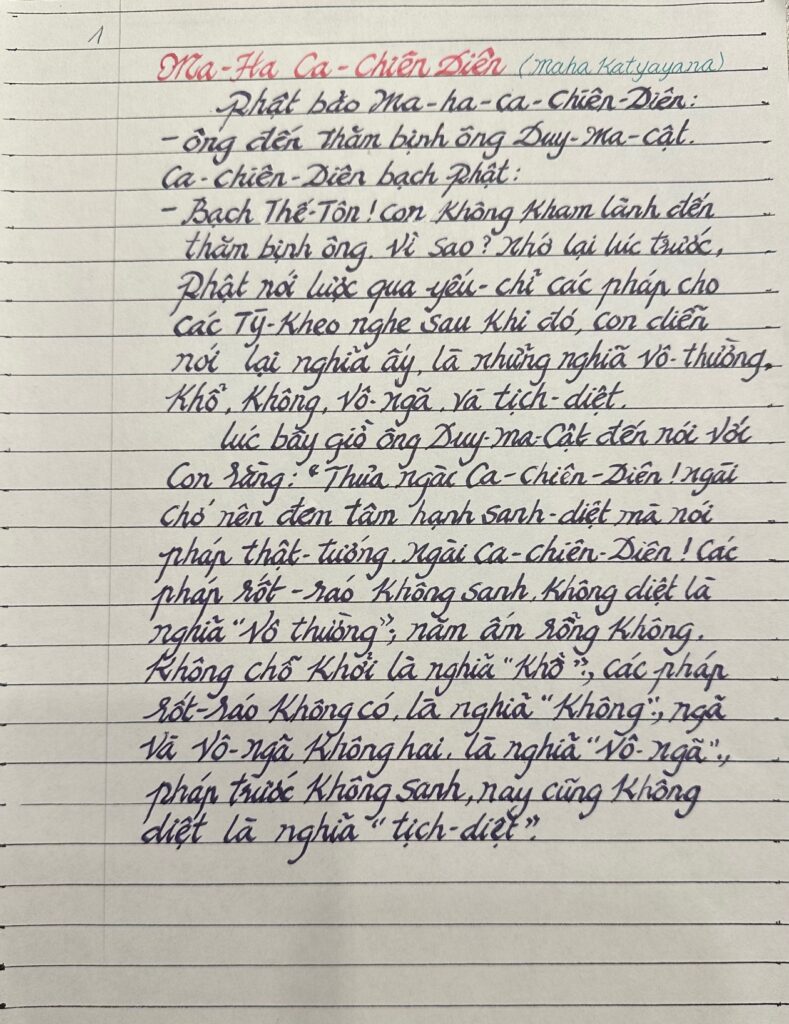 1
Ma-Ha Ca-Chiên Diên (Maha Katyayana)
Phật bảo Ma-ha-ca-Chiên-Diên:
- Ông đến thăm bịnh ông Duy-Ma-Cật.
Ca-Chiên-Diên bạch Phật:
- Bạch Thế-Tôn! Con không kham lãnh đến
thăm bịnh ông. Vì sao? Nhớ lại lúc trước,
Phật nói lược qua yếu-chỉ các pháp cho
các Tỳ-Kheo nghe sau khi đó, con diễn
nói lại nghĩa ấy, là những nghĩa Vô-thường,
Khổ, Không, Vô-ngã, và tịch-diệt.
Lúc bấy giờ ông Duy-Ma-Cật đến nói với
Con rằng: "Thưa ngài Ca-Chiên-Diên! ngài
chớ nên đem tâm hạnh sanh-diệt mà nói
pháp thật-tướng. Ngài Ca-Chiên-Diên! Các
pháp rốt-ráo không sanh, không diệt là
nghĩa "Vô thường"; năm ấm rỗng không.
Không chỗ khởi là nghĩa "Khổ"; các pháp
rốt-ráo không có, là nghĩa "Không"; ngã
và Vô-ngã không hai, là nghĩa "Vô-ngã";
pháp trước không sanh, nay cũng không
diệt là nghĩa "tịch-diệt".